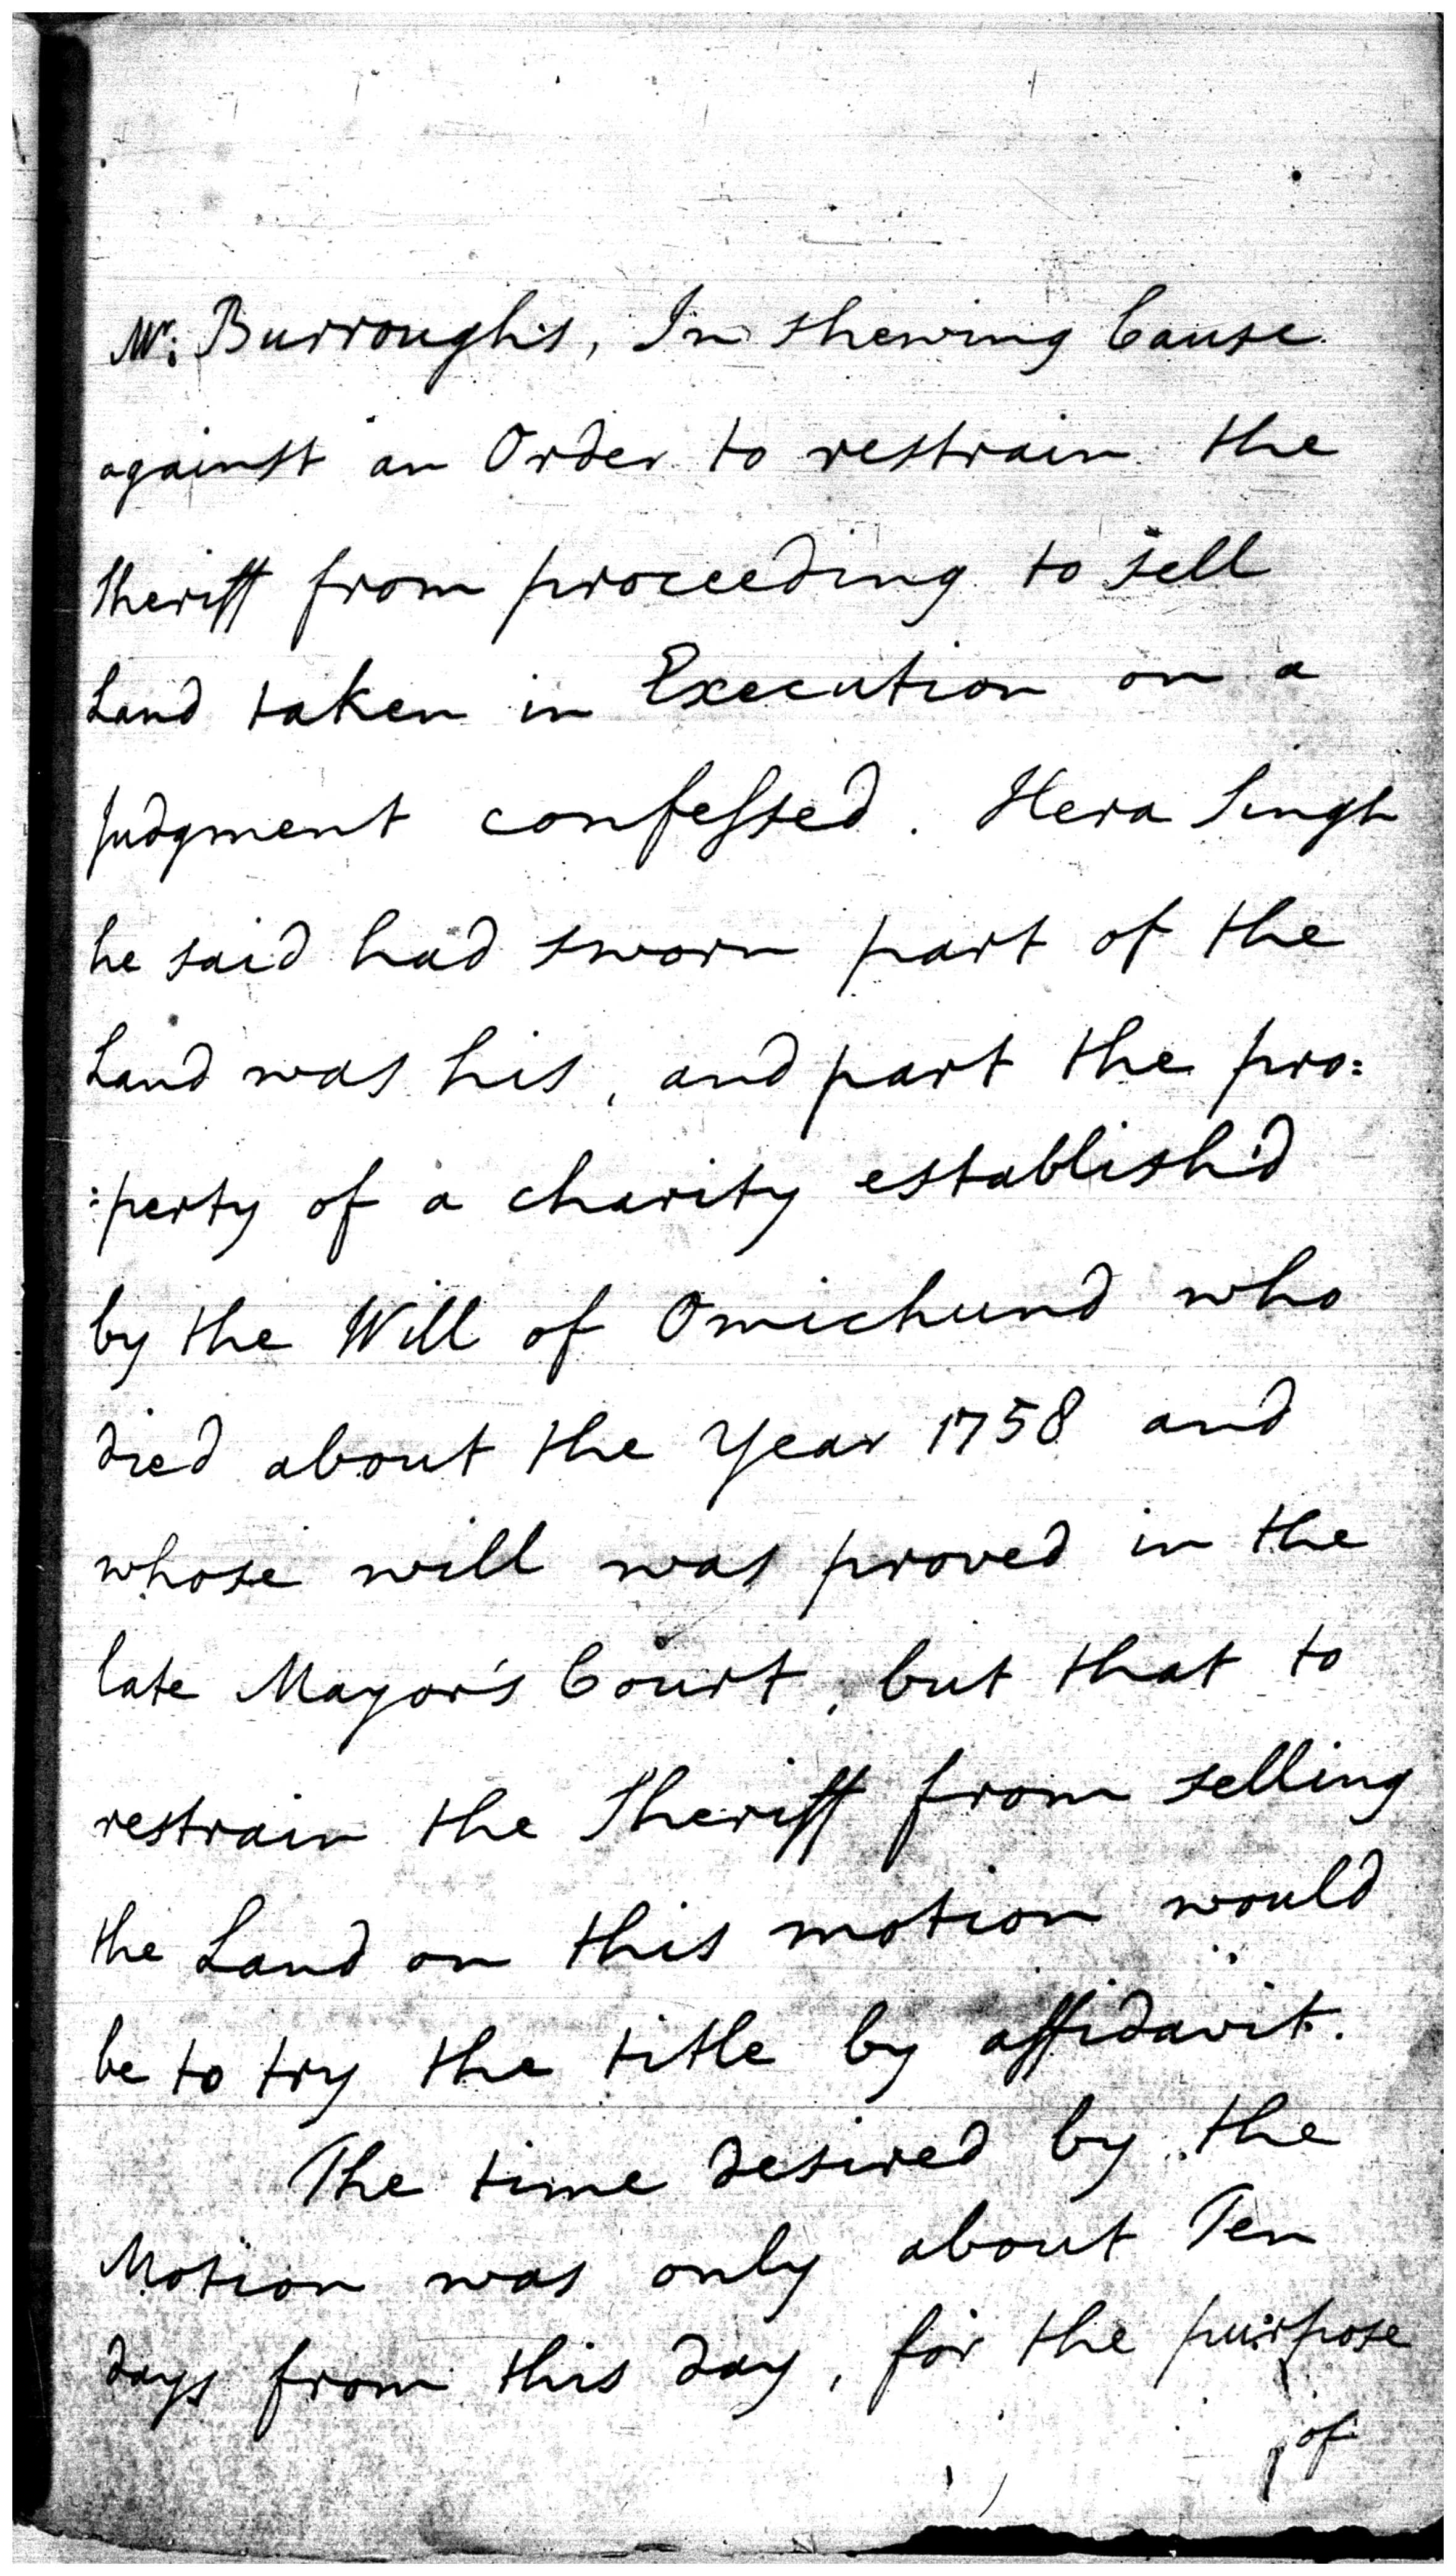 Mr: Burroughs, In shewing Cause
against an Order to restrain the
Sheriff from proceeding to sell
Land taken in Execution on a
Judgment confeſsed. Hera Singh
he said had sworn part of the
Land was his, and part the pro:
:perty of a charity establish'd
by the Will of Omichund who
died about the Year 1758 and
whose will was proved in the
late Mayor's Court, but that to
restrain the Sheriff from selling
the Land on this motion would
be to try the title by affidavit.
The time desired by the
Motion was only about Ten
days from this day, for the purpose
of